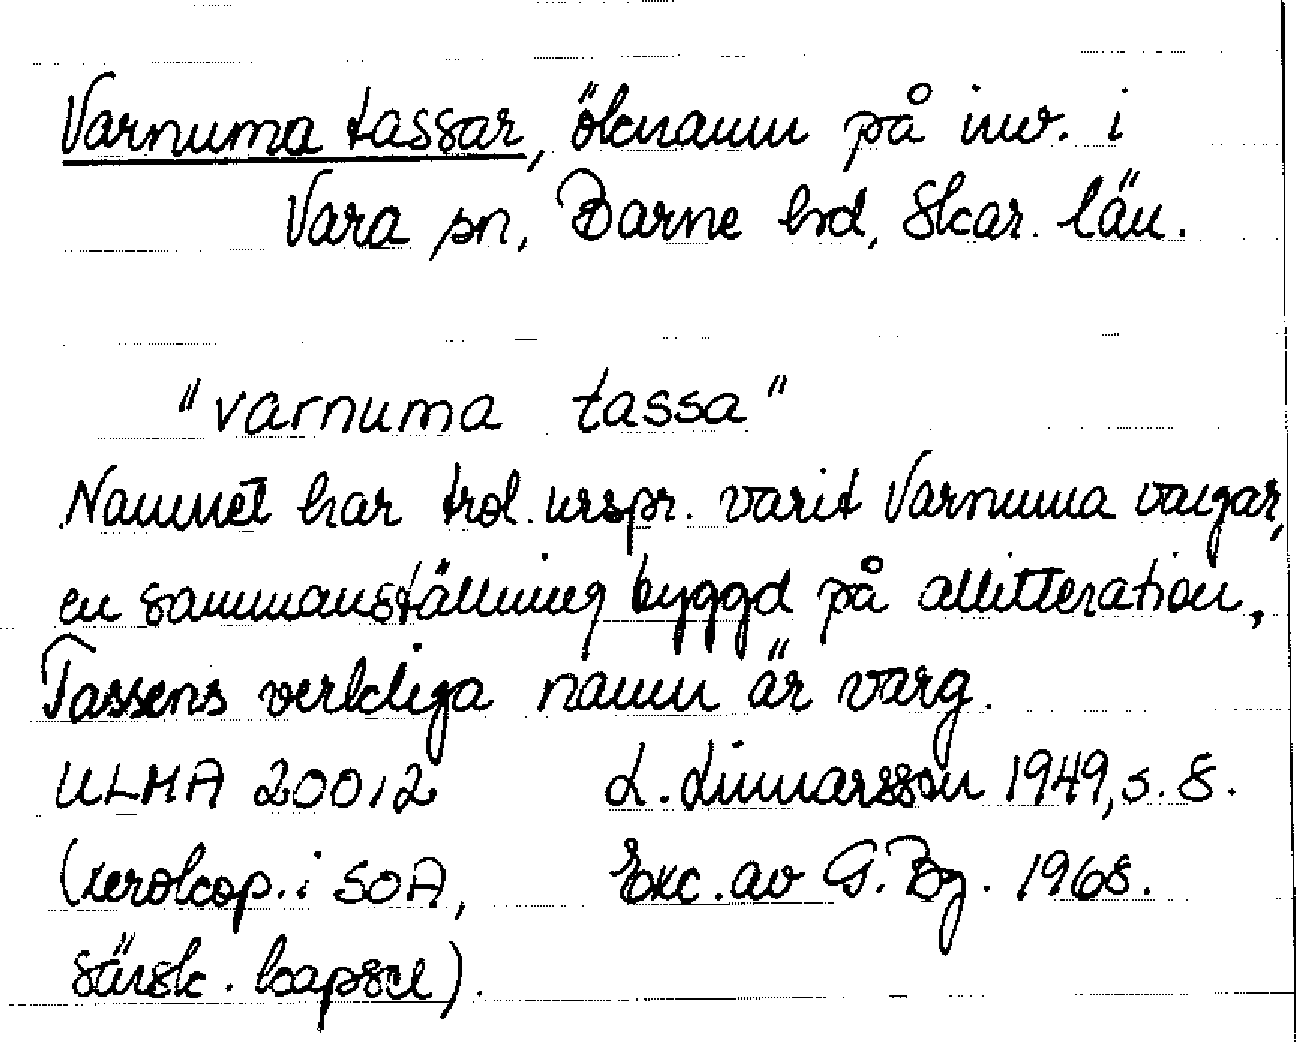 Varnuma tassar, öknamn på inv. i
Vara sn, Barne hd, Skar. län.
"varnuma tassa"
Namnet har trol. urspr. varit Varnuma vargar,
en sammanställning byggd på allitteration.
Tassens verkliga namn är varg.
ULMA 20012 L. Linnarsson 1949, s. 8.
(xerokop. i SOA, Exc. av G. Bg. 1968.
särsk. kapsel).